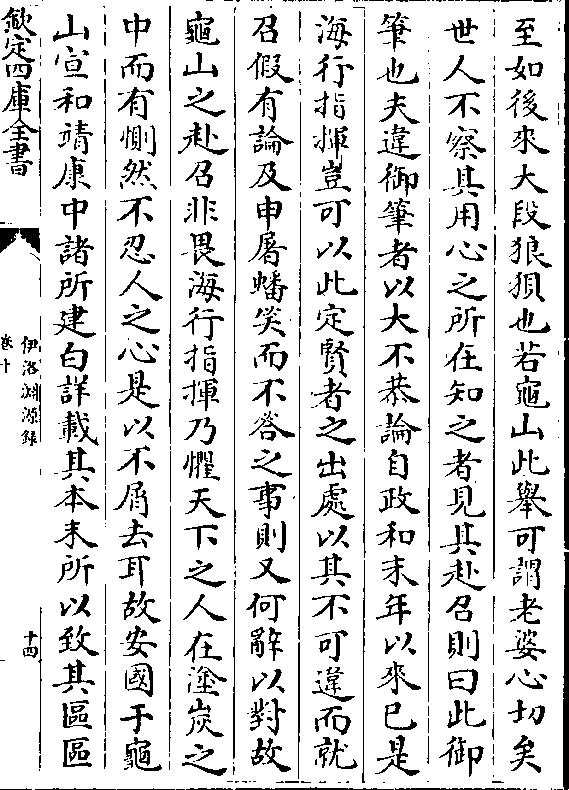 至如後來大段狼狽也若龜山此舉可謂老婆心切矣
世人不察其用心之所在知之者見其赴召則曰此御
筆也夫違御筆者以大不恭論自政和末年以來已是
海行指揮豈可以此定賢者之出處以其不可違而就
召假有論及申屠蟠笑而不答之事則又何辭以對故
龜山之赴召非畏海行指揮乃懼天下之人在塗炭之
中而有惻然不忍人之心是以不屑去耳故安國于龜
山宣和靖康中諸所建白詳載其本末所以致其區區
欽定四庫全書
伊洛淵源錄
卷十
十四